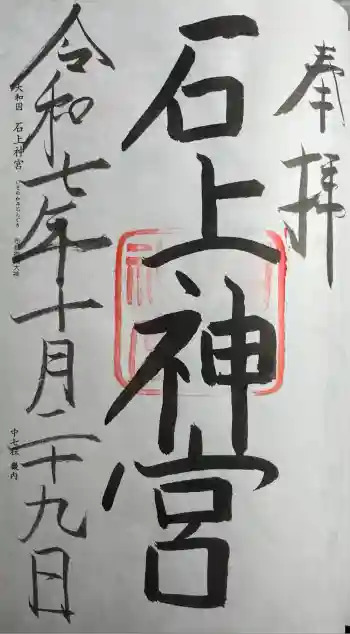 奉拝
石上神宮
令和七年十月二十九日
大和国 石上神宮
中七社 畿内